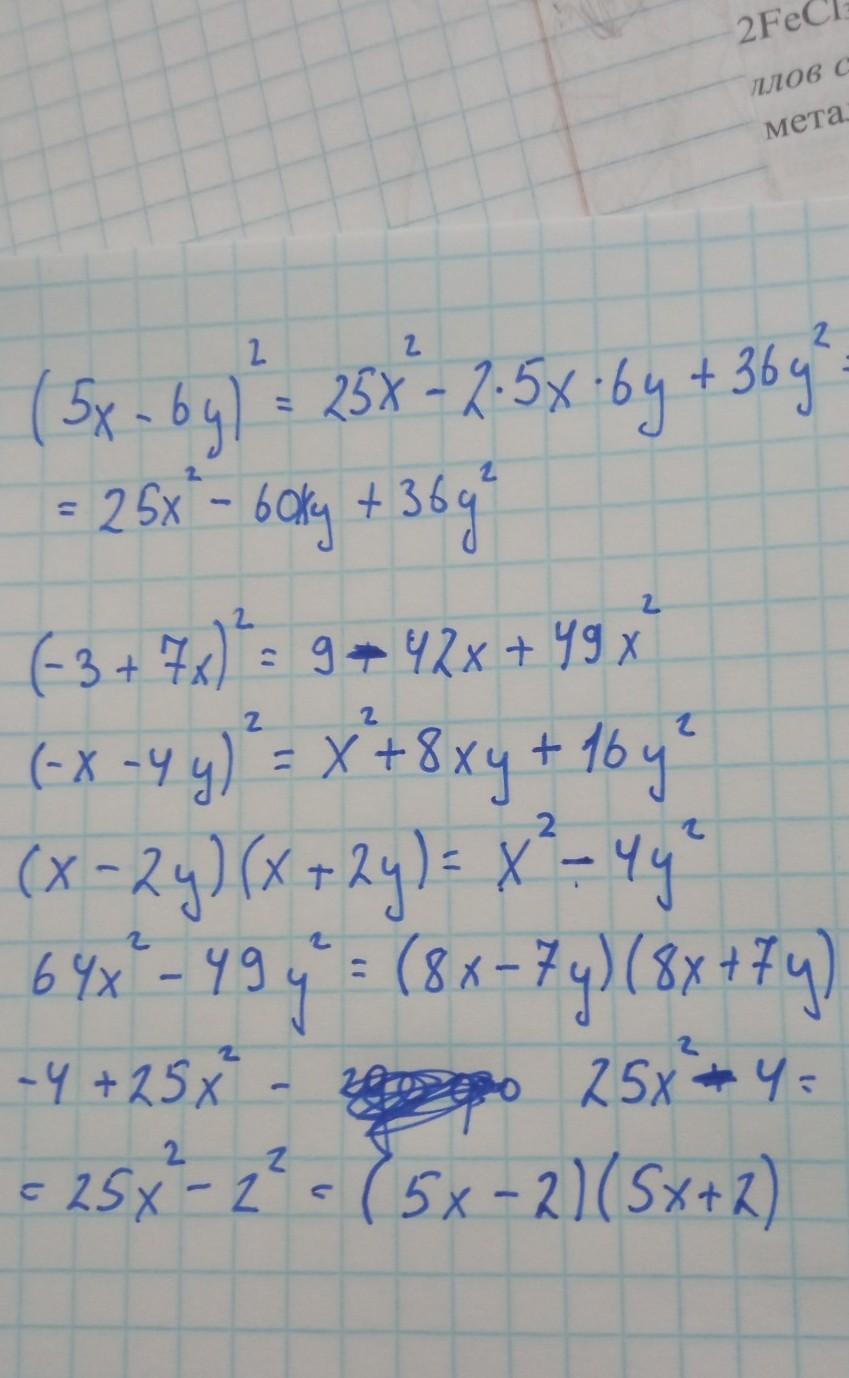 2FeCl₃
ллов с
мета
(5x - 6y)² = 25x² - 2·5x·6y + 36y² =
= 25x² - 60xy + 36y²
(-3 + 7x)² = 9 - 42x + 49x²
(-x - 4y)² = x² + 8xy + 16y²
(x - 2y)(x + 2y) = x² - 4y²
64x² - 49y² = (8x - 7y)(8x + 7y)
-4 + 25x² - 25x² - 4 =
= 25x² - 2² = (5x - 2)(5x + 2)